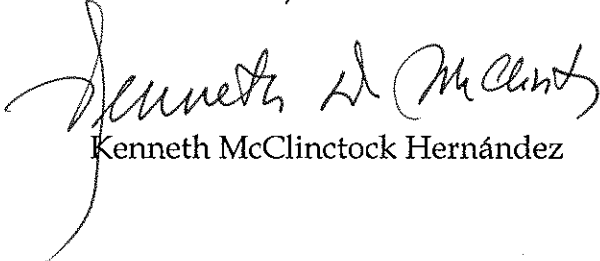 Kenneth D McClintock
Kenneth McClinctock Hernández